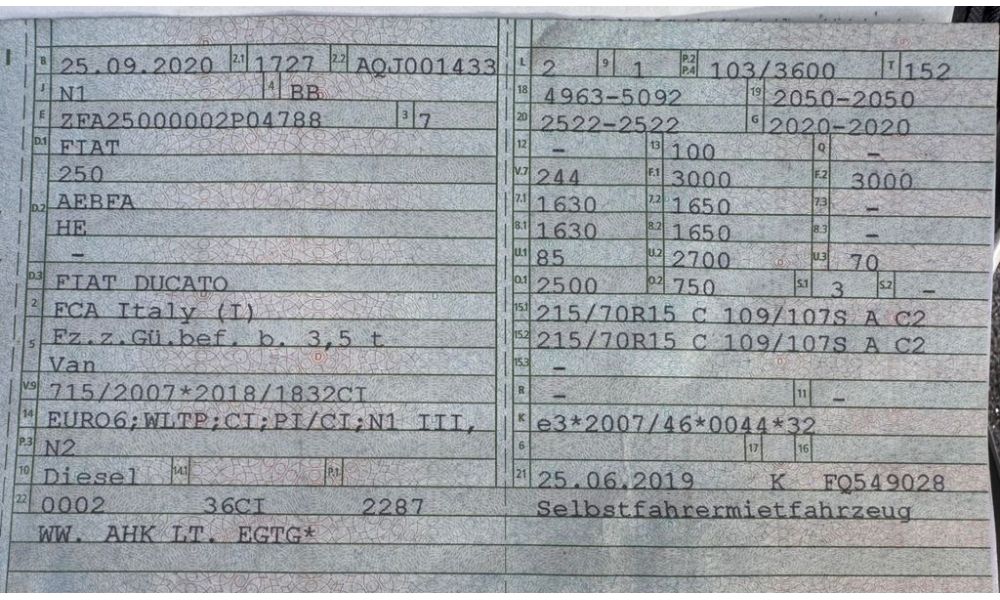 B 25.09.2020 2.1 1727 2.2 AQJ001433
J N1 4 BB
E ZFA25000002P04788 3 7
D.1 FIAT
250
D.2 AEBFA
HE
–
D.3 FIAT DUCATO
2 FCA Italy (I)
5 Fz.z.Gü.bef. b. 3,5 t
Van
V.9 715/2007*2018/1832CI
14 EURO6;WLTP;CI;PI/CI;N1 III,
P.3 N2
10 Diesel 14.1 P.1
22 0002 36CI 2287
WW. AHK LT. EGTG*
L 2 9 1 P.2 P.4 103/3600 T 152
18 4963-5092 19 2050-2050
20 2522-2522 G 2020-2020
12 – 13 100 Q –
V.7 244 F.1 3000 F.2 3000
7.1 1630 7.2 1650 7.3 –
8.1 1630 8.2 1650 8.3 –
U.1 85 U.2 2700 U.3 70
O.1 2500 O.2 750 S.1 3 S.2 –
15.1 215/70R15 C 109/107S A C2
15.2 215/70R15 C 109/107S A C2
15.3 –
R – 11 –
K e3*2007/46*0044*32
6 17 16
21 25.06.2019 K FQ549028
Selbstfahrermietfahrzeug